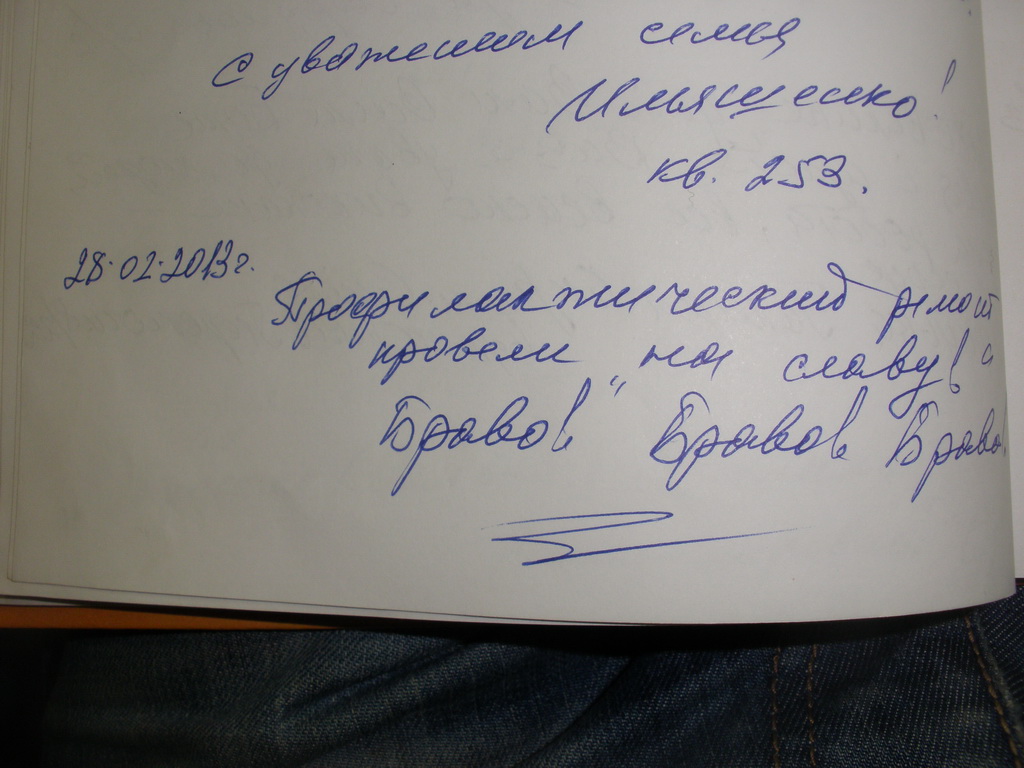 С уважением семья
Ильященко!
кв. 253.
28.02.2013г.
Профилактический ремонт
провели "на славу!"
Браво! Браво! Браво!